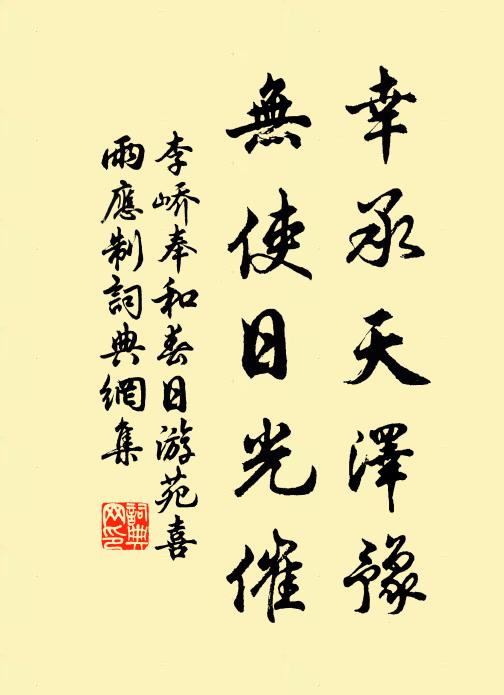 幸承天澤豫
無使日光催
李嶠奉和春日游苑喜
雨應制詞典網集
詞典网印